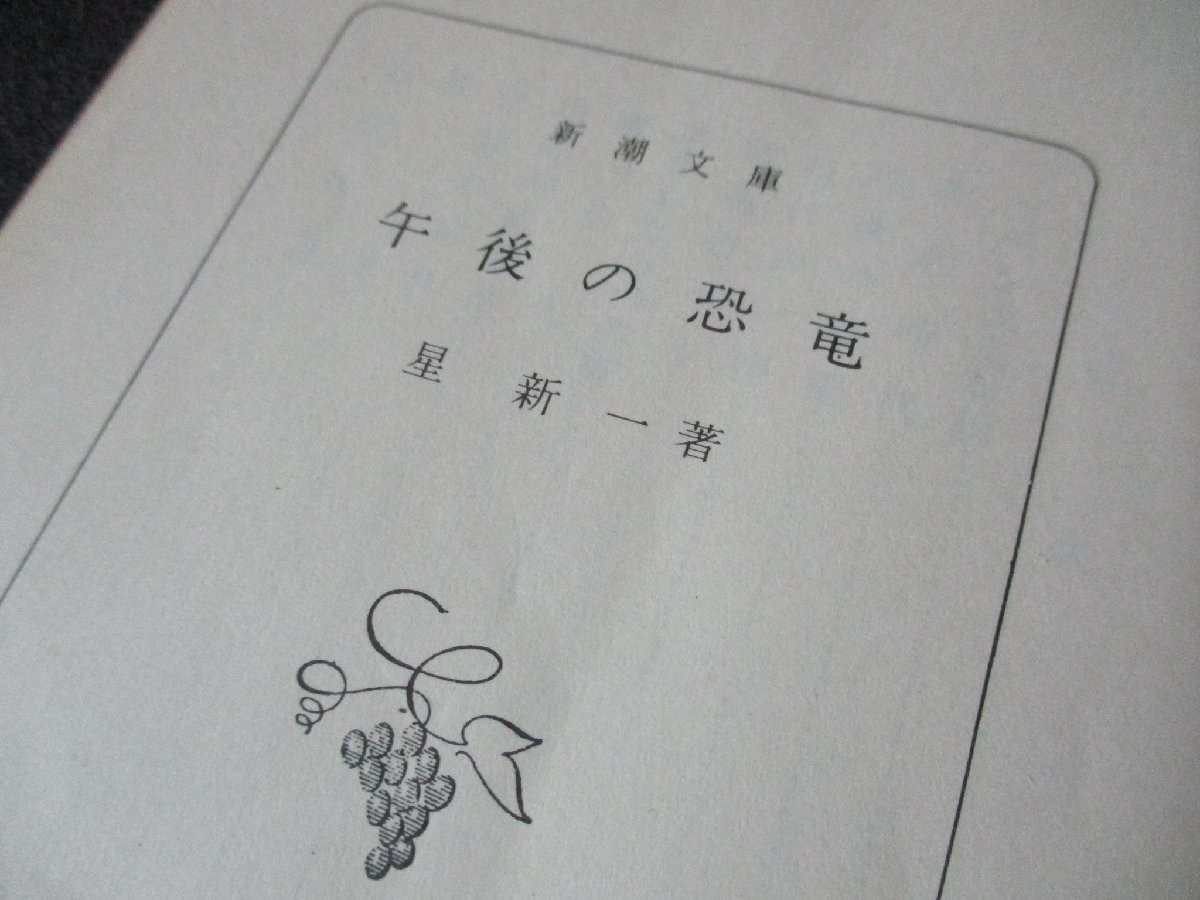 新潮文庫
午後の恐竜
星新一著